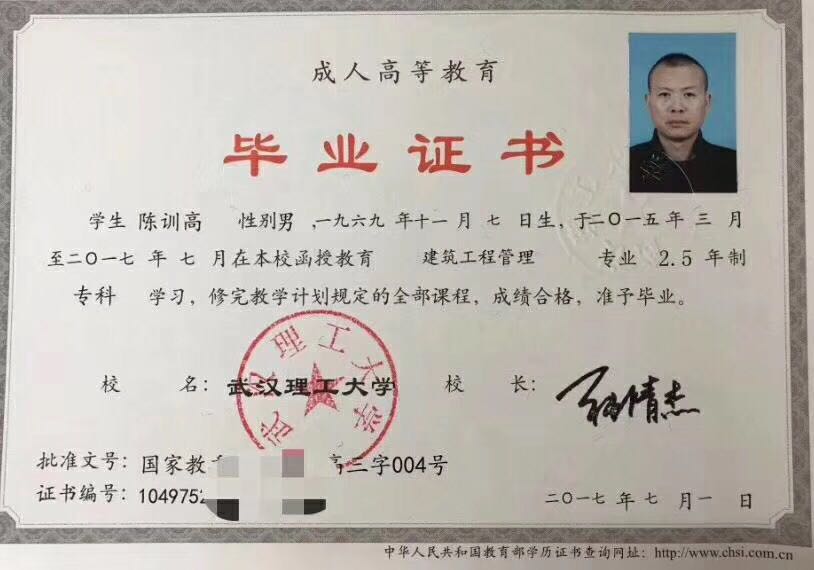 成人高等教育
毕业证书
学生 陈训高 性别男,一九六九 年十一月 七 日生,于二〇一五年 三 月
至二〇一七 年 七 月在本校函授教育 建筑工程管理 专业 2.5 年制
专科 学习,修完教学计划规定的全部课程,成绩合格,准予毕业。
武汉理工大学
校 名:武汉理工大学 校 长:
批准文号:国家教 高三字004号
证书编号:1049752
二〇一七 年 七 月 一 日
中华人民共和国教育部学历证书查询网址:http://www.chsi.com.cn